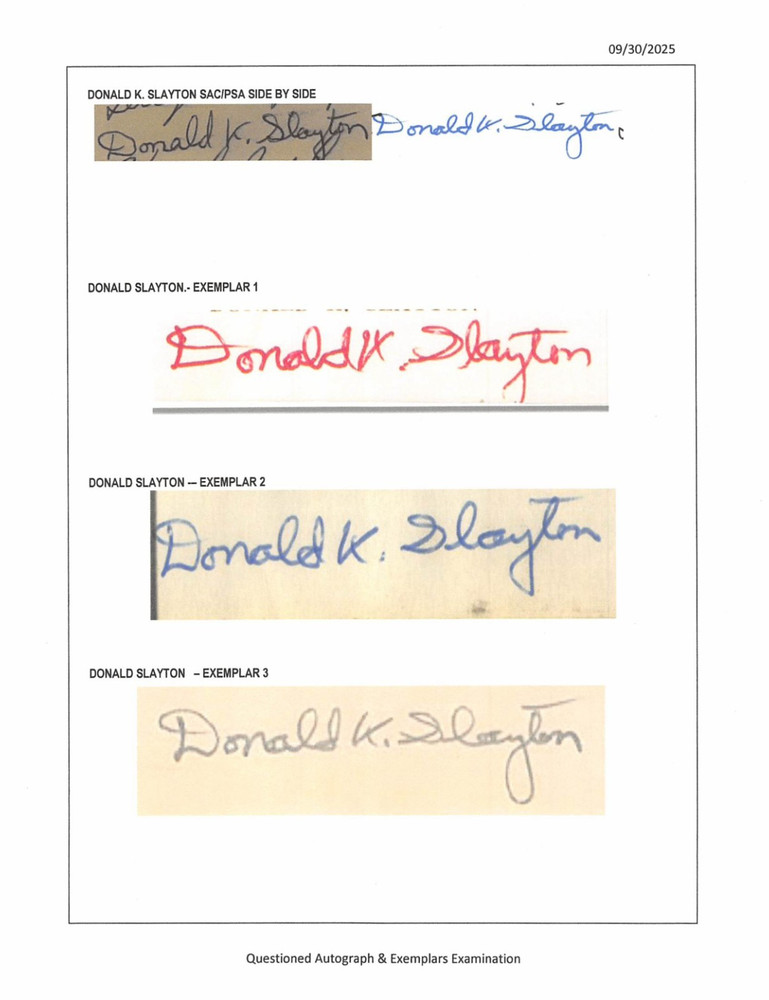 09/30/2025
DONALD K. SLAYTON SAC/PSA SIDE BY SIDE
Donald K. Slayton Donald K. Slayton
DONALD SLAYTON.- EXEMPLAR 1
Donald K. Slayton
DONALD SLAYTON -- EXEMPLAR 2
Donald K. Slayton
DONALD SLAYTON – EXEMPLAR 3
Donald K. Slayton
Questioned Autograph & Exemplars Examination